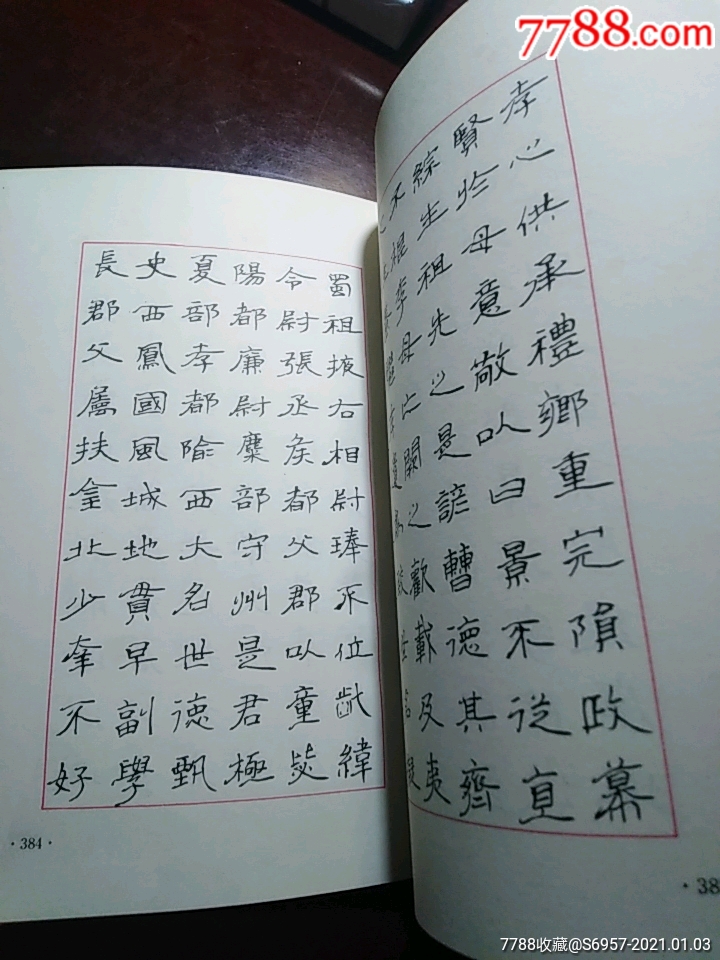 長史夏陽令蜀
郡西部都尉祖
父鳳孝廉張掖
屬國都尉丞右
扶風隃麋矦相
金城西部都尉
北地大守父琫
少貫名州郡不
幸早世是以位
不副德君童齔
好學甄極毖緯
·384·
不綜賢孝
根生於心
季祖母供
繼母先意承
亡之敬禮
遺闕是以鄉
為之諺曰重
致歡曹景完
世載德不隕
名及其從政
擬夷齊直慕
7788.com
7788收藏@S6957-2021.01.03